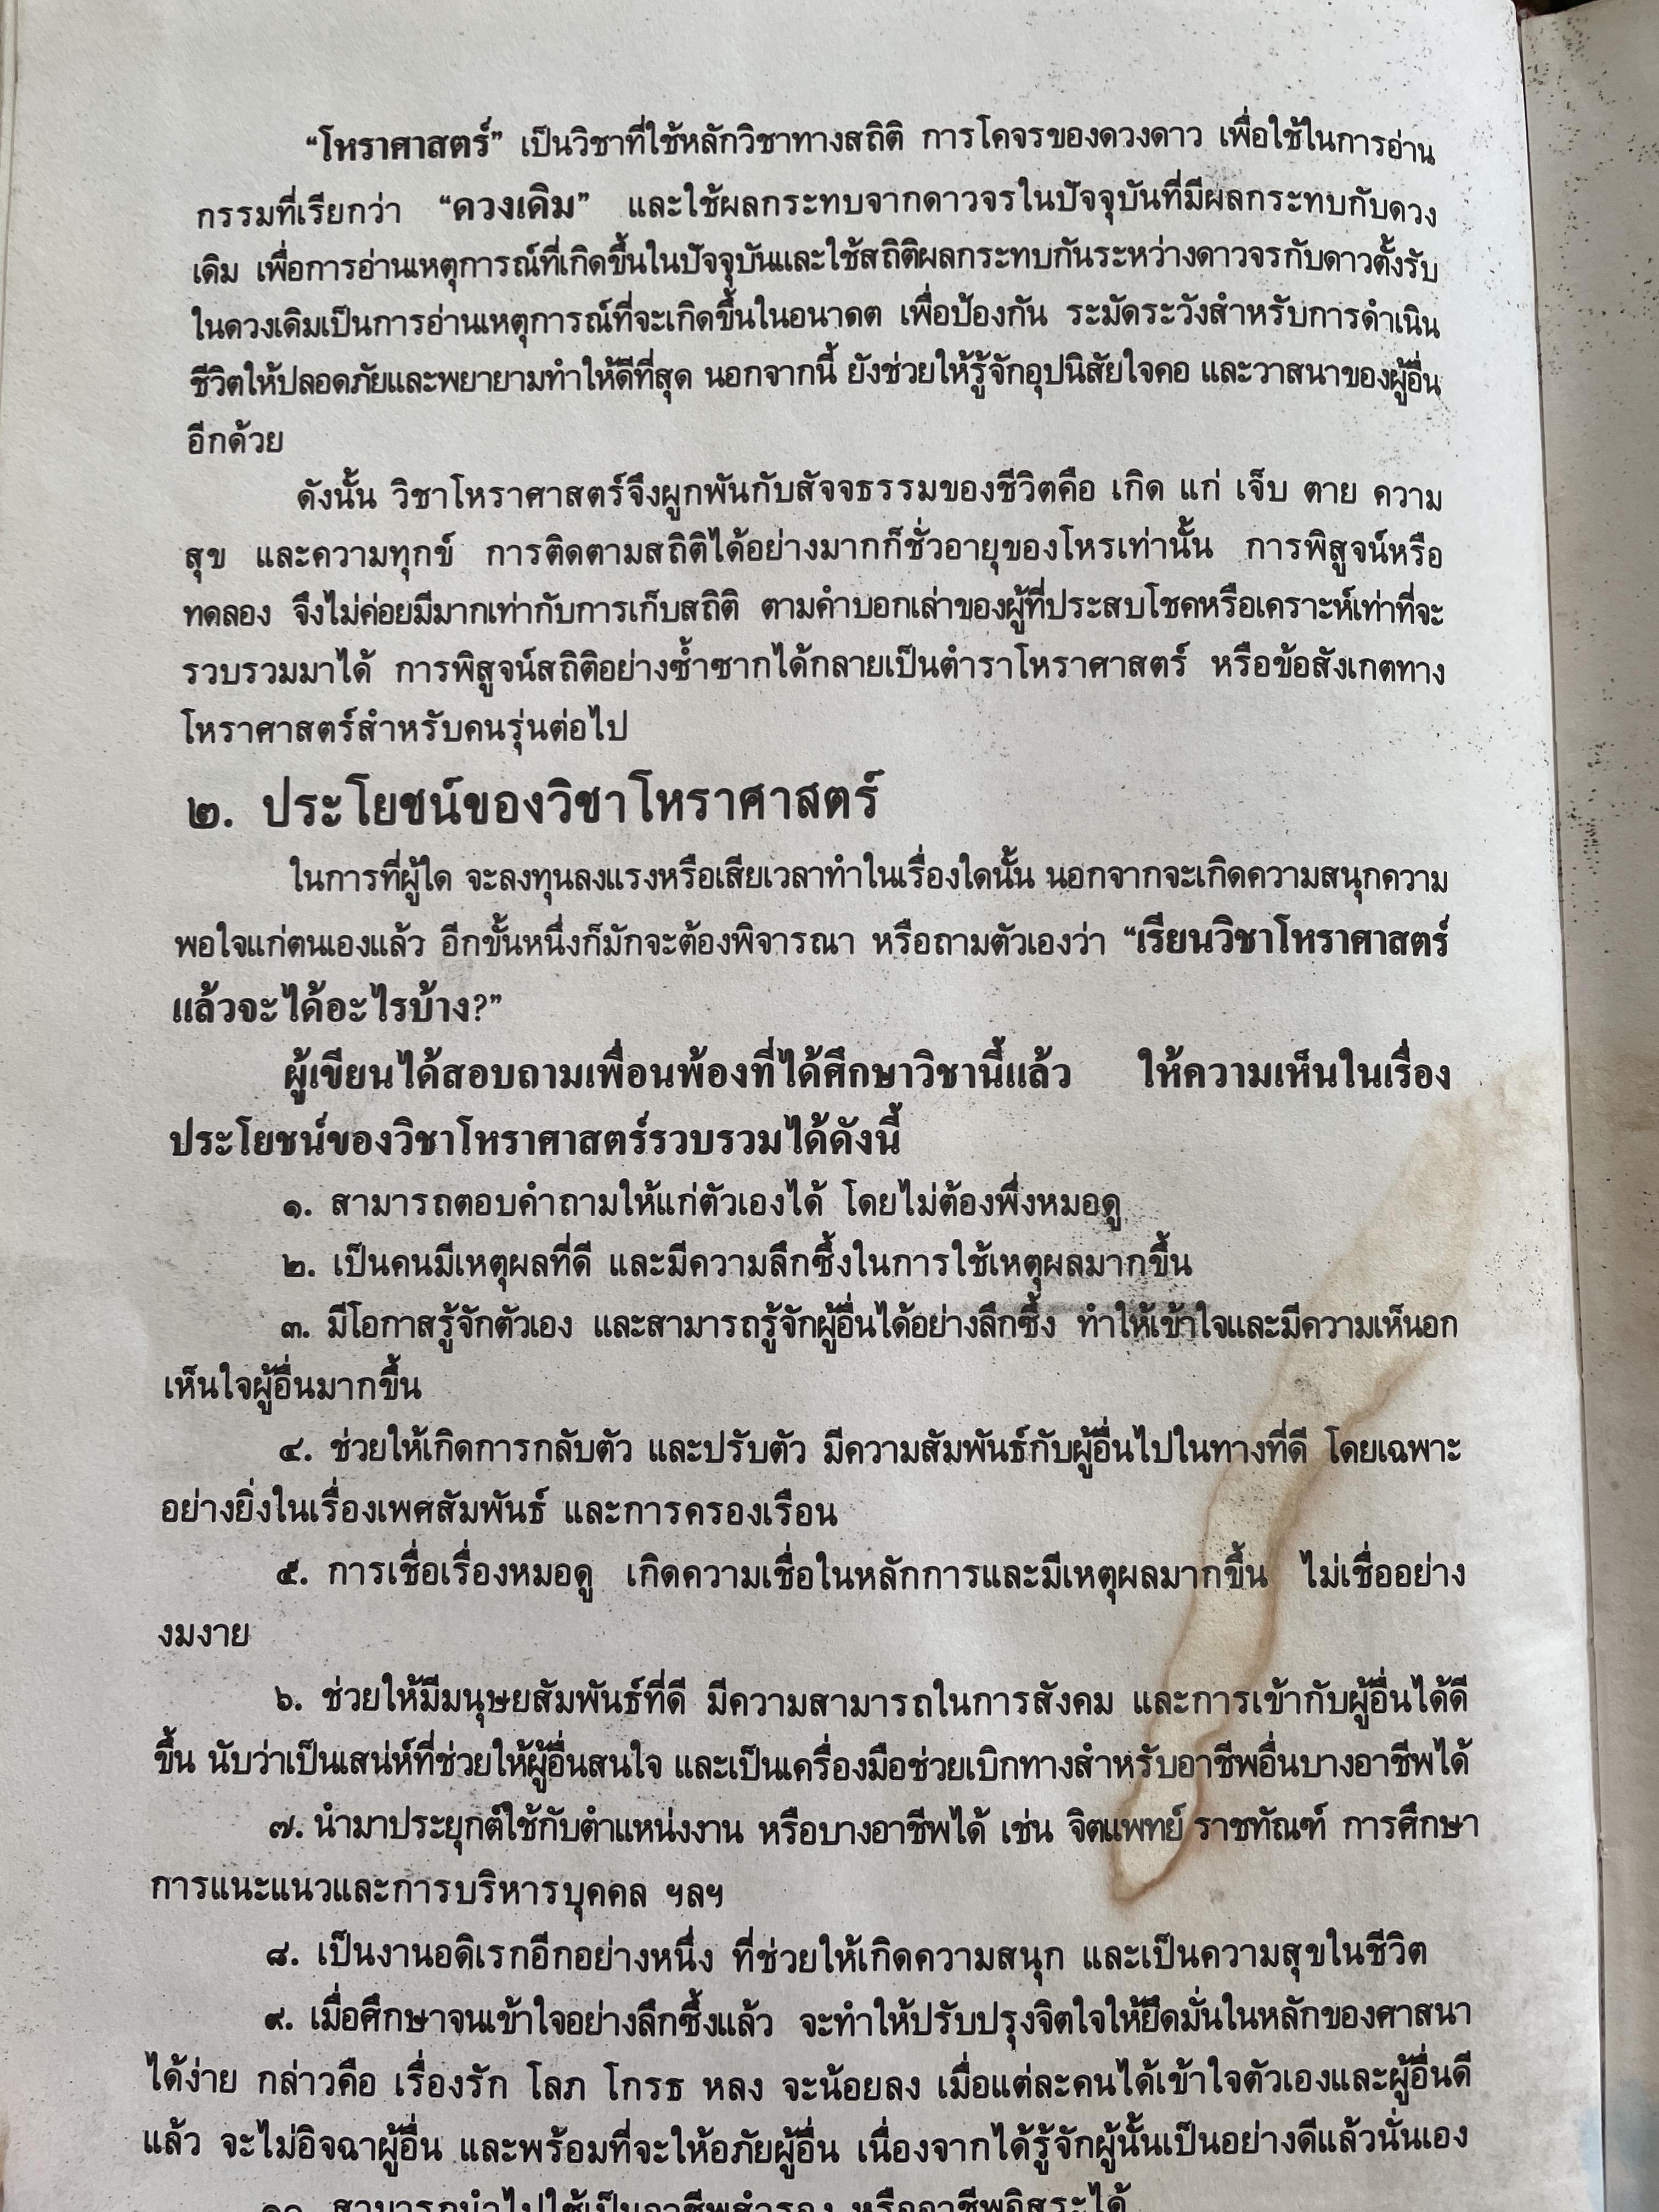 “โหราศาสตร์” เป็นวิชาที่ใช้หลักวิชาทางสถิติ การโคจรของดวงดาว เพื่อใช้ในการอ่าน
กรรมที่เรียกว่า “ดวงเดิม” และใช้ผลกระทบจากดาวจรในปัจจุบันที่มีผลกระทบกับดวง
เดิม เพื่อการอ่านเหตุการณ์ที่เกิดขึ้นในปัจจุบันและใช้สถิติผลกระทบกันระหว่างดาวจรกับดาวตั้งรับ
ในดวงเดิมเป็นการอ่านเหตุการณ์ที่จะเกิดขึ้นในอนาคต เพื่อป้องกัน ระมัดระวังสำหรับการดำเนิน
ชีวิตให้ปลอดภัยและพยายามทำให้ดีที่สุด นอกจากนี้ ยังช่วยให้รู้จักอุปนิสัยใจคอ และวาสนาของผู้อื่น
อีกด้วย
ดังนั้น วิชาโหราศาสตร์จึงผูกพันกับสัจจธรรมของชีวิตคือ เกิด แก่ เจ็บ ตาย ความ
สุข และความทุกข์ การติดตามสถิติได้อย่างมากก็ชั่วอายุของโหรเท่านั้น การพิสูจน์หรือ
ทดลอง จึงไม่ค่อยมีมากเท่ากับการเก็บสถิติ ตามคำบอกเล่าของผู้ที่ประสบโชคหรือเคราะห์เท่าที่จะ
รวบรวมมาได้ การพิสูจน์สถิติอย่างซ้ำซากได้กลายเป็นตำราโหราศาสตร์ หรือข้อสังเกตทาง
โหราศาสตร์สำหรับคนรุ่นต่อไป
๒. ประโยชน์ของวิชาโหราศาสตร์
ในการที่ผู้ใด จะลงทุนลงแรงหรือเสียเวลาทำในเรื่องใดนั้น นอกจากจะเกิดความสนุกความ
พอใจแก่ตนเองแล้ว อีกขั้นหนึ่งก็มักจะต้องพิจารณา หรือถามตัวเองว่า “เรียนวิชาโหราศาสตร์
แล้วจะได้อะไรบ้าง?”
ผู้เขียนได้สอบถามเพื่อนพ้องที่ได้ศึกษาวิชานี้แล้ว ให้ความเห็นในเรื่อง
ประโยชน์ของวิชาโหราศาสตร์รวบรวมได้ดังนี้
๑. สามารถตอบคำถามให้แก่ตัวเองได้ โดยไม่ต้องพึ่งหมอดู
๒. เป็นคนมีเหตุผลที่ดี และมีความลึกซึ้งในการใช้เหตุผลมากขึ้น
๓. มีโอกาสรู้จักตัวเอง และสามารถรู้จักผู้อื่นได้อย่างลึกซึ้ง ทำให้เข้าใจและมีความเห็นอก
เห็นใจผู้อื่นมากขึ้น
๔. ช่วยให้เกิดการกลับตัว และปรับตัว มีความสัมพันธ์กับผู้อื่นไปในทางที่ดี โดยเฉพาะ
อย่างยิ่งในเรื่องเพศสัมพันธ์ และการครองเรือน
๕. การเชื่อเรื่องหมอดู เกิดความเชื่อในหลักการและมีเหตุผลมากขึ้น ไม่เชื่ออย่าง
งมงาย
๖. ช่วยให้มีมนุษยสัมพันธ์ที่ดี มีความสามารถในการสังคม และการเข้ากับผู้อื่นได้ดี
ขึ้น นับว่าเป็นเสน่ห์ที่ช่วยให้ผู้อื่นสนใจ และเป็นเครื่องมือช่วยเบิกทางสำหรับอาชีพอื่นบางอาชีพได้
๗. นำมาประยุกต์ใช้กับตำแหน่งงาน หรือบางอาชีพได้ เช่น จิตแพทย์ ราชทัณฑ์ การศึกษา
การแนะแนวและการบริหารบุคคล ฯลฯ
๘. เป็นงานอดิเรกอีกอย่างหนึ่ง ที่ช่วยให้เกิดความสนุก และเป็นความสุขในชีวิต
๙. เมื่อศึกษาจนเข้าใจอย่างลึกซึ้งแล้ว จะทำให้ปรับปรุงจิตใจให้ยึดมั่นในหลักของศาสนา
ได้ง่าย กล่าวคือ เรื่องรัก โลภ โกรธ หลง จะน้อยลง เมื่อแต่ละคนได้เข้าใจตัวเองและผู้อื่นดี
แล้ว จะไม่อิจฉาผู้อื่น และพร้อมที่จะให้อภัยผู้อื่น เนื่องจากได้รู้จักผู้นั้นเป็นอย่างดีแล้วนั่นเอง
๑๐. สามารถนำไปใช้เป็นอาชีพสำรอง หรืออาชีพอิสระได้